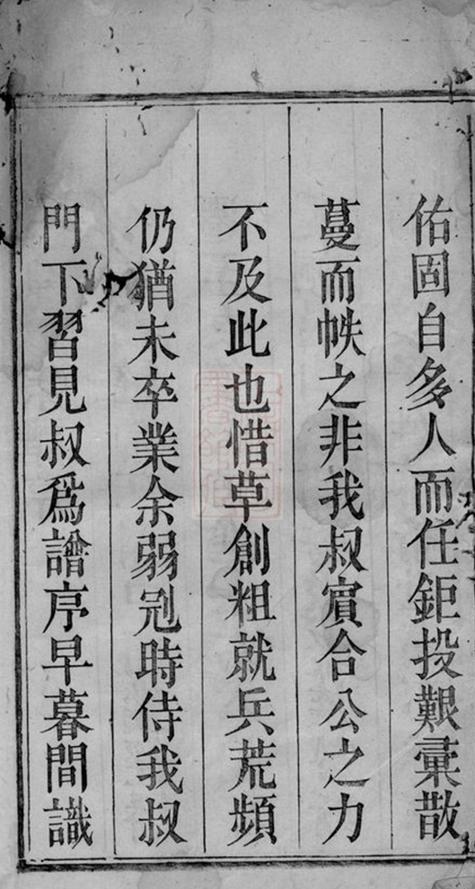 佑固自多人而任鉅投艱彙散
蔓而帙之非我叔賔合公之力
不及此也惜草創粗就兵荒頻
仍猶未卒業余弱冠時侍我叔
門下習見叔爲譜序早暮間識